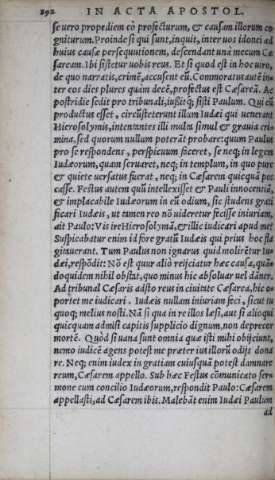 292 IN ACTA APOSTOL.
se uero propediem eò profecturum, & causam illorum co
gniturum. Proinde si qui sunt, inquit, inter uos idonei ad
huius causæ persequutionem, descendant unà mecum Cæ
saream. Ibi sistetur uobis reus. Et si quod est in hoc uiro,
de quo narratis, crimē, accusent eū. Commoratus autē in-
ter eos dies plures quàm decē, profectus est Cæsareā. Ac
postridie sedit pro tribunali, iußitq́; sisti Paulum. Qui cū
productus esset, circūsteterunt illum Iudæi qui uenerant
Hierosolymis, intentantes illi multa simul & grauia cri-
mina, sed quorum nullum poterāt probare: quum Paulus
pro se respondens, perspicuum faceret, se neq; in legem
Iudæorum, quam seruaret, neq; in templum, in quo purè
& quietè uersatus fuerat, neq; in Cæsarem quicquā pec
casse. Festus autem quū intellexisset & Pauli innocentiā,
& implacabile Iudæorum in eū odium, sic studens grati
ficari Iudæis, ut tamen reo nō uideretur fecisse iniuriam,
ait Paulo: Vis ire Hierosolymā, & illic iudicari apud me?
Suspicabatur enim id fore gratū Iudæis qui prius hoc fla
gitauerant. Tum Paulus non ignarus quid molirētur Iu-
dæi, respōdit: Nō est quur aliò reijciatur hæc causa, quā-
doquidem nihil obstat, quo minus hic absoluar uel dāner.
Ad tribunal Cæsaris adsto reus in ciuitate Cæsarea, hic o-
portet me iudicari. Iudæis nullam iniuriam feci, sicut tu
quoq; melius nosti. Nā si qua in re illos læsi, aut si alioqui
quicquam admisi capitis supplicio dignum, non deprecor
mortē. Quòd si uana sunt omnia quæ isti mihi obijciunt,
nemo iudicē agens potest me præter ius illorū odijs dona
re. Neq; enim iudex in gratiam cuiusquā potest damnare
reum, Cæsarem appello. Sub hæc Festus cōmunicato ser-
mone cum concilio Iudæorum, respondit Paulo: Cæsarem
appellasti, ad Cæsarem ibis. Malebāt enim Iudæi Paulum
ad